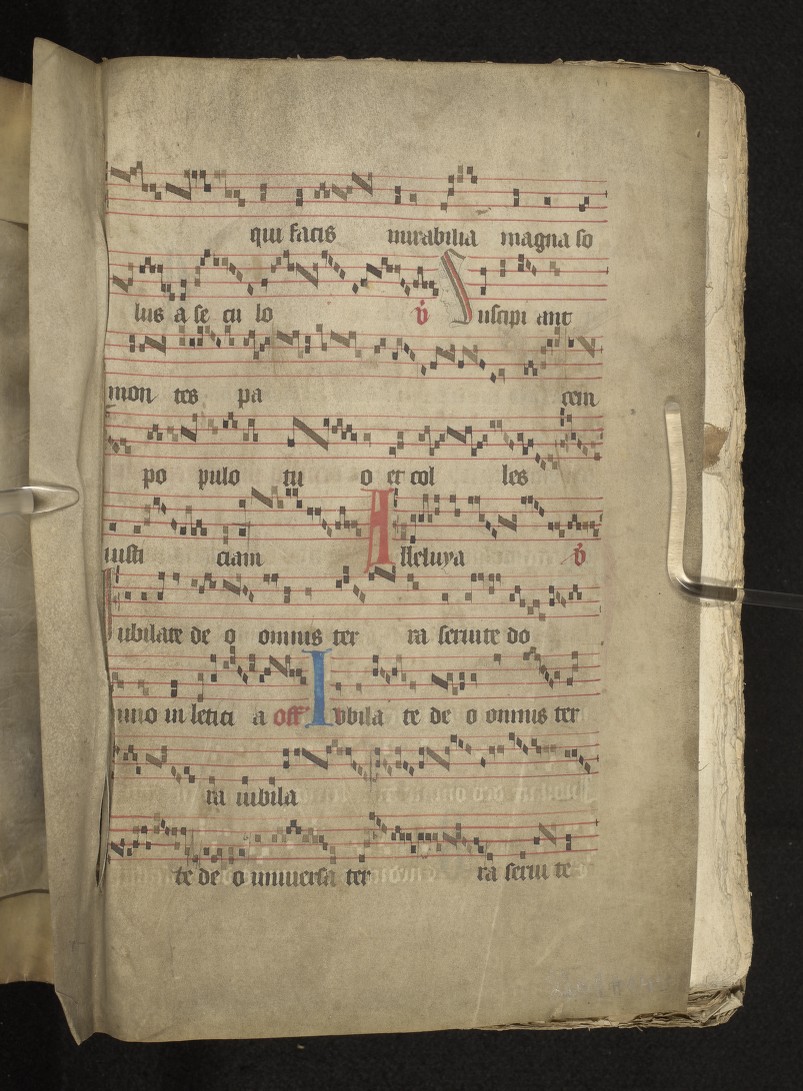 qui facis mirabilia magna so
lus a se cu lo v̇ Suscipi ant
mon tes pa cem
po pulo tu o et col les
iusti ciam Alleluya v̇
Iubilate de o omnis ter ra seruite do
mino in letici a off' Iubila te de o omnis ter
ra iubila
te de o uniuersa ter ra serui te